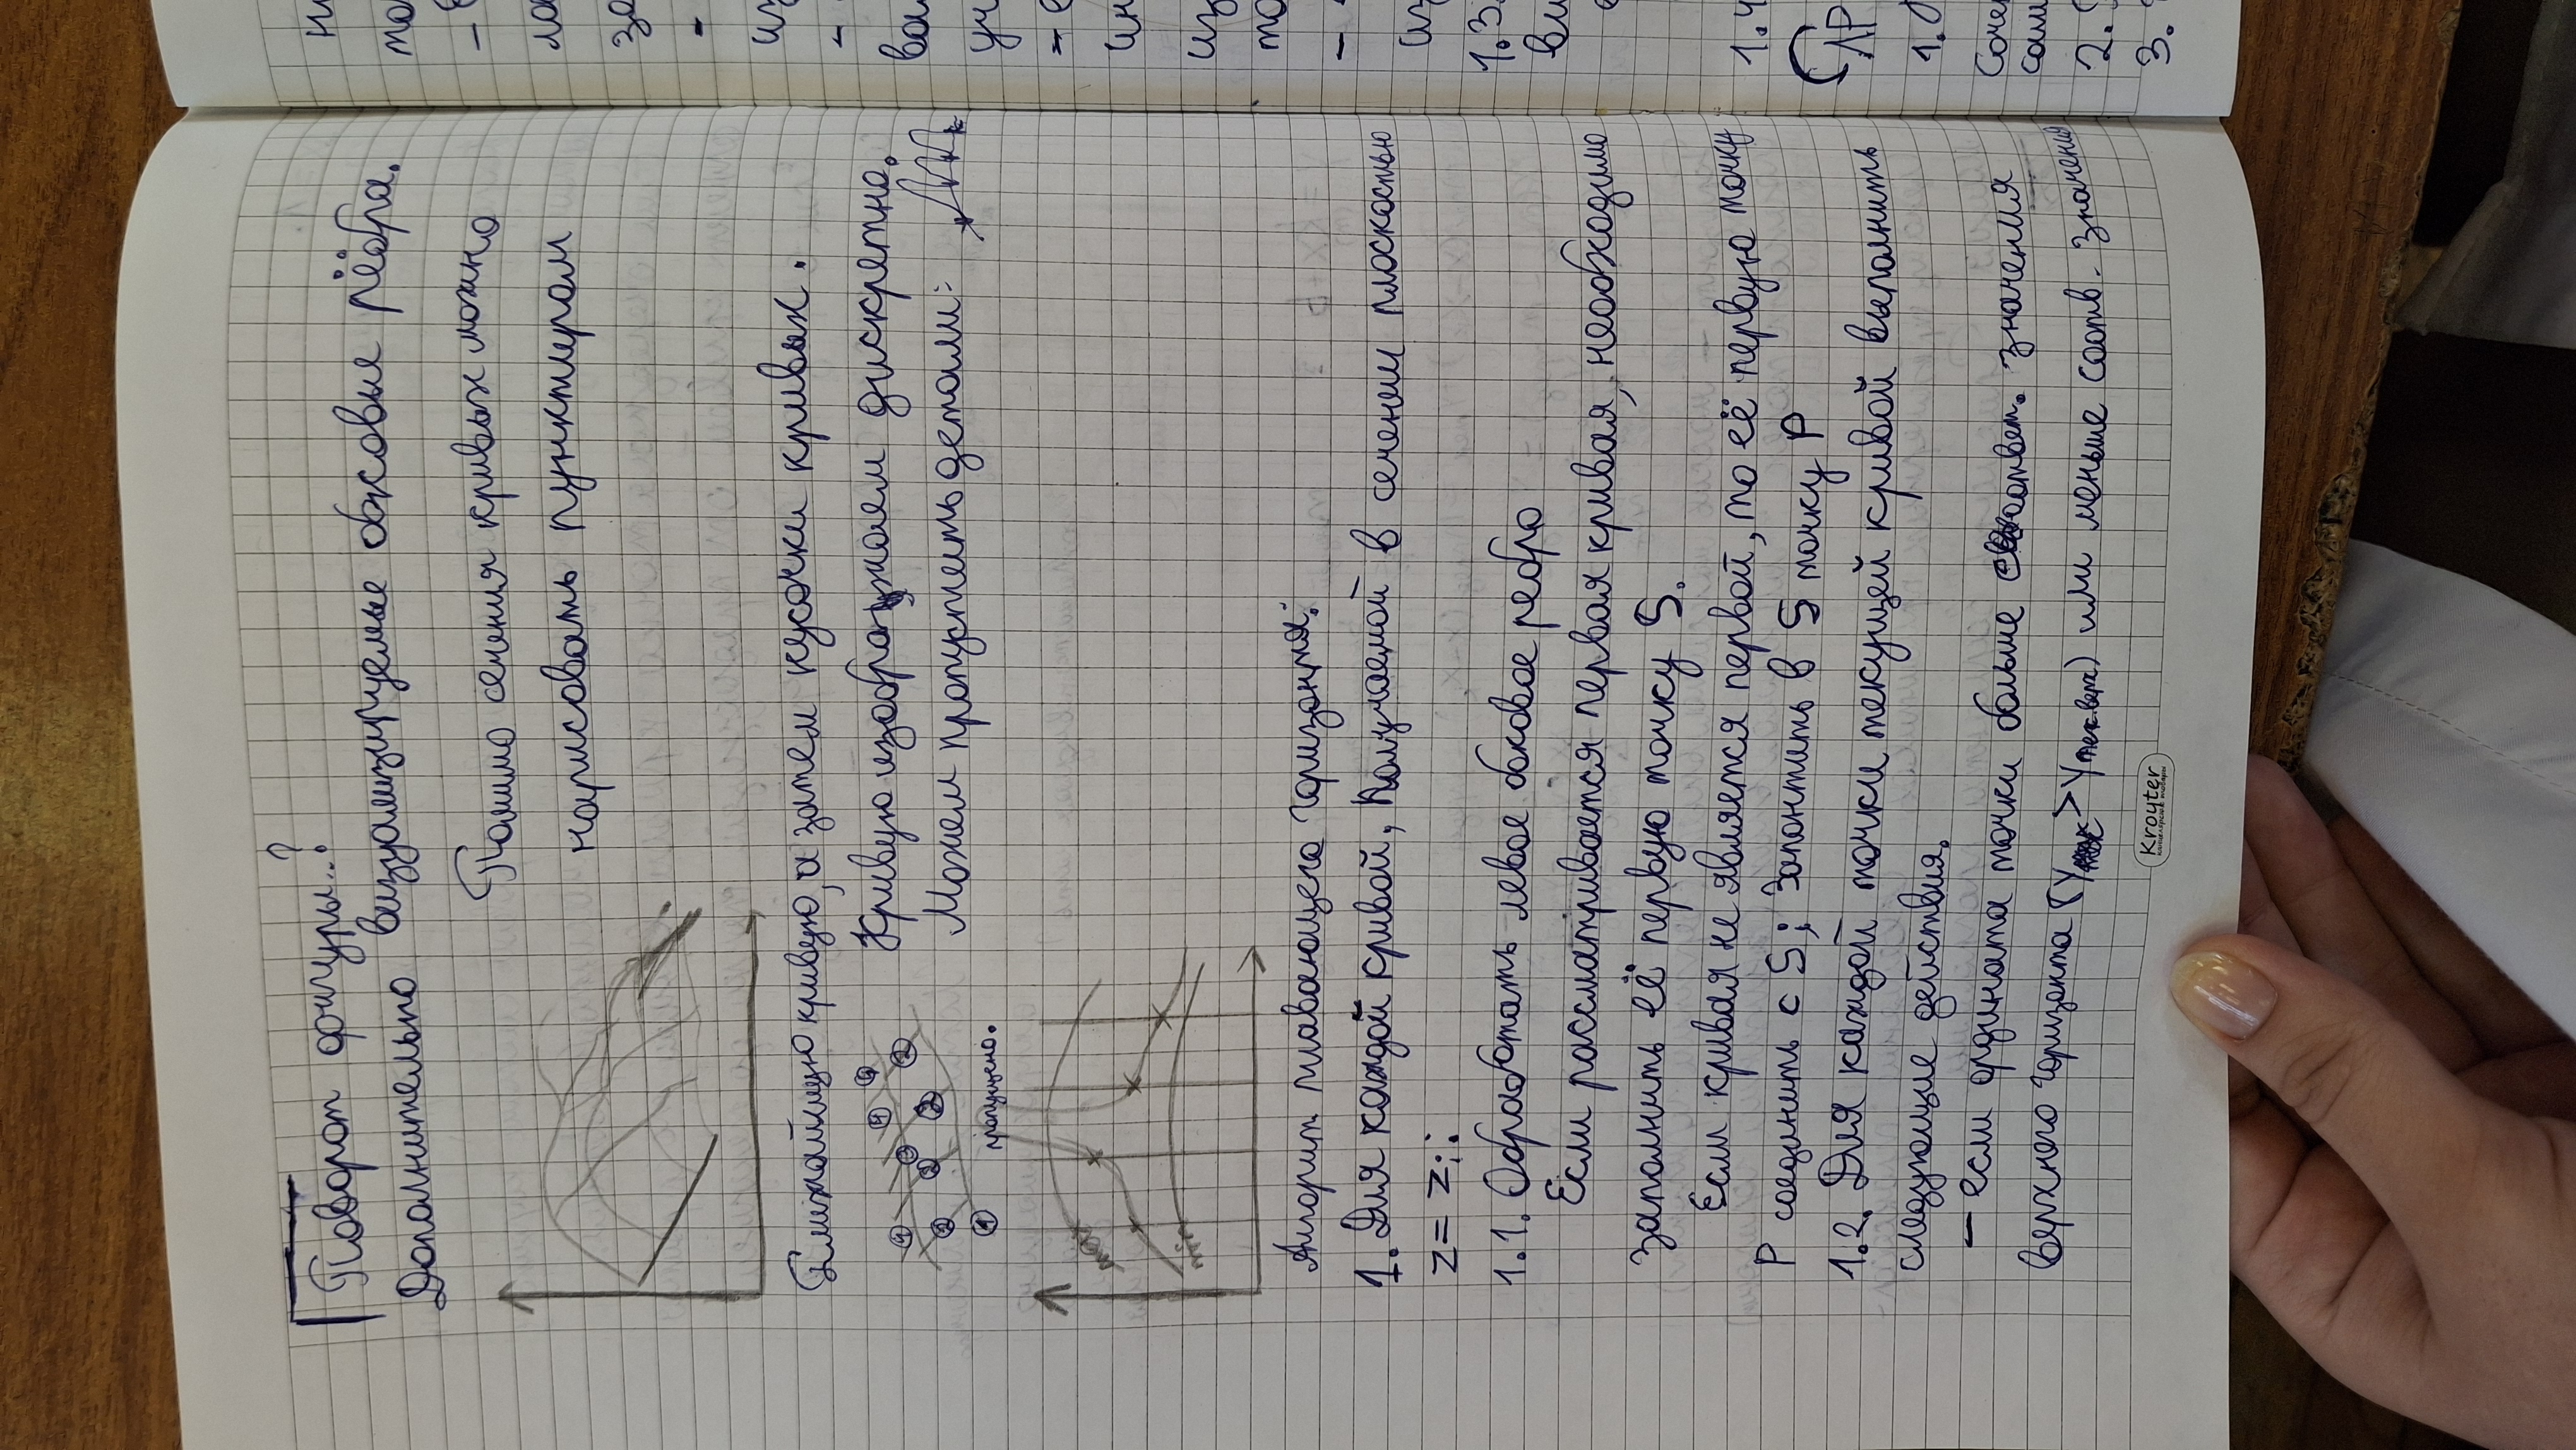 Поворот фигуры..?
Дополнительно визуализируемые боковые рёбра.
Помимо сечения кривых можно
нарисовать пунктиром
Ближайшую кривую, а затем кусочки кривых.
4 3 4 4
2 2 2 2
1
Кривую изображаем дискретно.
Можем пропустить детали:
пропущено.
max
min
Алгорит. плавающего горизонта:
1. Для каждой кривой, получаемой в сечении плоскостью
z = zi:
1.1. Обработать левое боковое ребро
Если рассматривается первая кривая, необходимо
заполнить её первую точку S.
Если кривая не является первой, то её первую точку
P соединить с S; Запонтить в S точку P
1.2. Для каждой точки текущей кривой выполнить
следующие действия.
– если ордината точки больше соответ. значения
верхнего горизонта (y > y тек.верх) или меньше соотв. значения
Kroyter
канцелярские товары
то
ло
за
-
из
-
ва
уч
ин
из
то
-
из
1.3.
ви
1.4
ЛР
1.
соче
сам
2.
3.